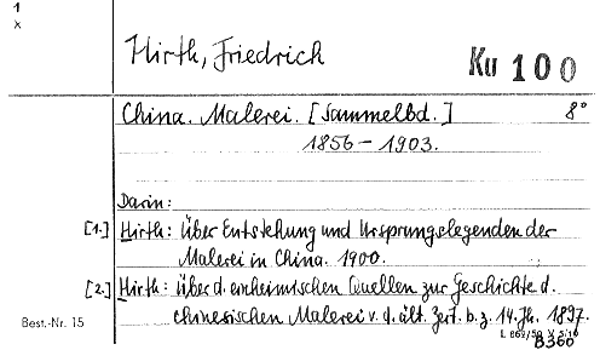 1
x
Hirth, Friedrich
Ku 100
China. Malerei. [Sammelbd.] 8°
1856 – 1903.
Darin:
[1.] Hirth: Über Entstehung und Ursprungslegenden der
Malerei in China. 1900.
[2.] Hirth: Über d. einheimischen Quellen zur Geschichte d.
chinesischen Malerei v. d. ält. Zeit. b. z. 14. Jh. 1897.
Best.-Nr. 15
B360